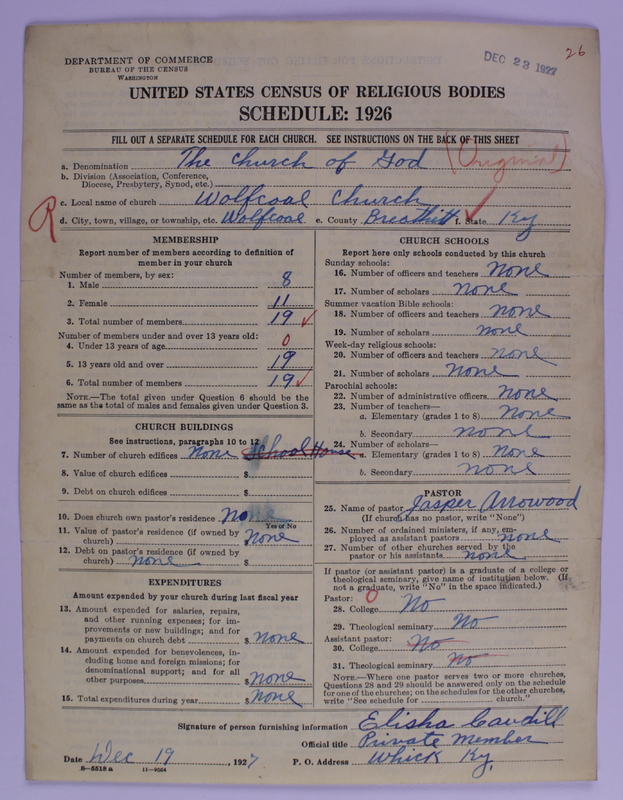 26
DEC 23 1927
DEPARTMENT OF COMMERCE
BUREAU OF THE CENSUS
WASHINGTON
UNITED STATES CENSUS OF RELIGIOUS BODIES
SCHEDULE: 1926
FILL OUT A SEPARATE SCHEDULE FOR EACH CHURCH. SEE INSTRUCTIONS ON THE BACK OF THIS SHEET
a. Denomination The Church of God (Original)
b. Division (Association, Conference,
Diocese, Presbytery, Synod, etc.)
c. Local name of church Wolfcoal Church
R d. City, town, village, or township, etc. Wolfcoal e. County Breathitt f. State Ky
MEMBERSHIP
Report number of members according to definition of
member in your church
Number of members, by sex:
1. Male 8
2. Female 11
3. Total number of members 19 ✓
Number of members under and over 13 years old:
4. Under 13 years of age 0
5. 13 years old and over 19
6. Total number of members 19 ✓
NOTE.—The total given under Question 6 should be the
same as the total of males and females given under Question 3.
CHURCH BUILDINGS
See instructions, paragraphs 10 to 12
7. Number of church edifices None School House
8. Value of church edifices $
9. Debt on church edifices $
10. Does church own pastor's residence no
Yes or No
11. Value of pastor's residence (if owned by
church) $ None
12. Debt on pastor's residence (if owned by
church) none $
EXPENDITURES
Amount expended by your church during last fiscal year
13. Amount expended for salaries, repairs,
and other running expenses; for im-
provements or new buildings; and for
payments on church debt $ None
14. Amount expended for benevolences, in-
cluding home and foreign missions; for
denominational support; and for all
other purposes $ None
15. Total expenditures during year $ None
CHURCH SCHOOLS
Report here only schools conducted by this church
Sunday schools:
16. Number of officers and teachers None
17. Number of scholars None
Summer vacation Bible schools:
18. Number of officers and teachers None
19. Number of scholars None
Week-day religious schools:
20. Number of officers and teachers None
21. Number of scholars None
Parochial schools:
22. Number of administrative officers None
23. Number of teachers—
a. Elementary (grades 1 to 8) None
b. Secondary None
24. Number of scholars—
a. Elementary (grades 1 to 8) None
b. Secondary None
PASTOR
25. Name of pastor Jasper Arrowood
(If church has no pastor, write "None")
26. Number of ordained ministers, if any, em-
ployed as assistant pastors none
27. Number of other churches served by the
pastor or his assistants none
If pastor (or assistant pastor) is a graduate of a college or
theological seminary, give name of institution below. (If
not a graduate, write "No" in the space indicated.)
Pastor: 0
28. College No
29. Theological seminary No
Assistant pastor:
30. College No
31. Theological seminary No
NOTE.—Where one pastor serves two or more churches,
Questions 28 and 29 should be answered only on the schedule
for one of the churches; on the schedules for the other churches,
write "See schedule for church."
Signature of person furnishing information Elisha Caudill
Official title Private Member
Date Dec 19, 1927 P. O. Address Whick Ky,
8—5518 a 11—9564